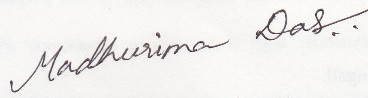 Madhurima Das..